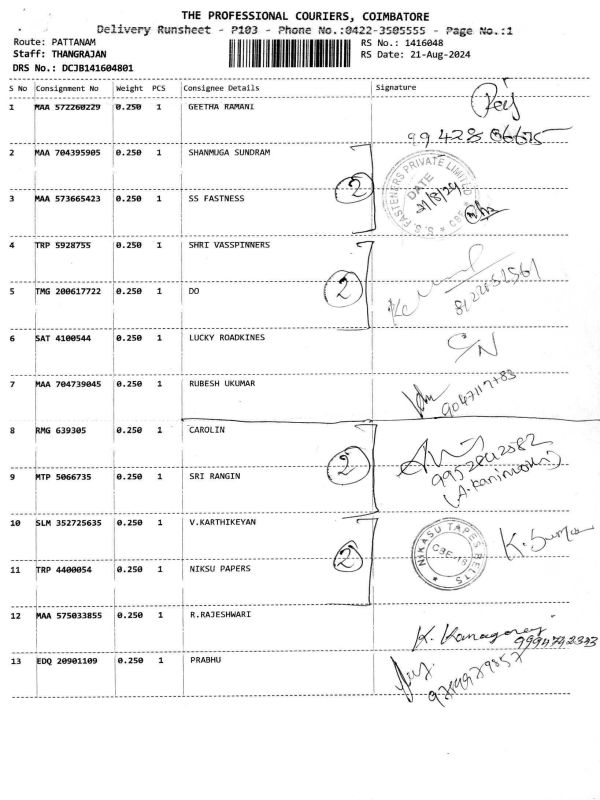 THE PROFESSIONAL COURIERS, COIMBATORE
Delivery Runsheet - P103 - Phone No.:0422-3505555 - Page No.:1
Route: PATTANAM RS No.: 1416048
Staff: THANGRAJAN RS Date: 21-Aug-2024
DRS No.: DCJB141604801
S No Consignment No Weight PCS Consignee Details Signature
1 MAA 572260229 0.250 1 GEETHA RAMANI
2 MAA 704395905 0.250 1 SHANMUGA SUNDRAM
3 MAA 573665423 0.250 1 SS FASTNESS
2
S.S. FASTENERS PRIVATE LIMITED
DATE
21/8/24
CBE
4 TRP 5928755 0.250 1 SHRI VASSPINNERS
5 TMG 200617722 0.250 1 DO
2
6 SAT 4100544 0.250 1 LUCKY ROADKINES
C/N
7 MAA 704739045 0.250 1 RUBESH UKUMAR
8 RMG 639305 0.250 1 CAROLIN
9 MTP 5066735 0.250 1 SRI RANGIN
2
10 SLM 352725635 0.250 1 V.KARTHIKEYAN
11 TRP 4400054 0.250 1 NIKSU PAPERS
2
NIKASU TAPES BELTS
CBE-18
12 MAA 575033855 0.250 1 R.RAJESHWARI
K. Kanagaraj
13 EDQ 20901109 0.250 1 PRABHU